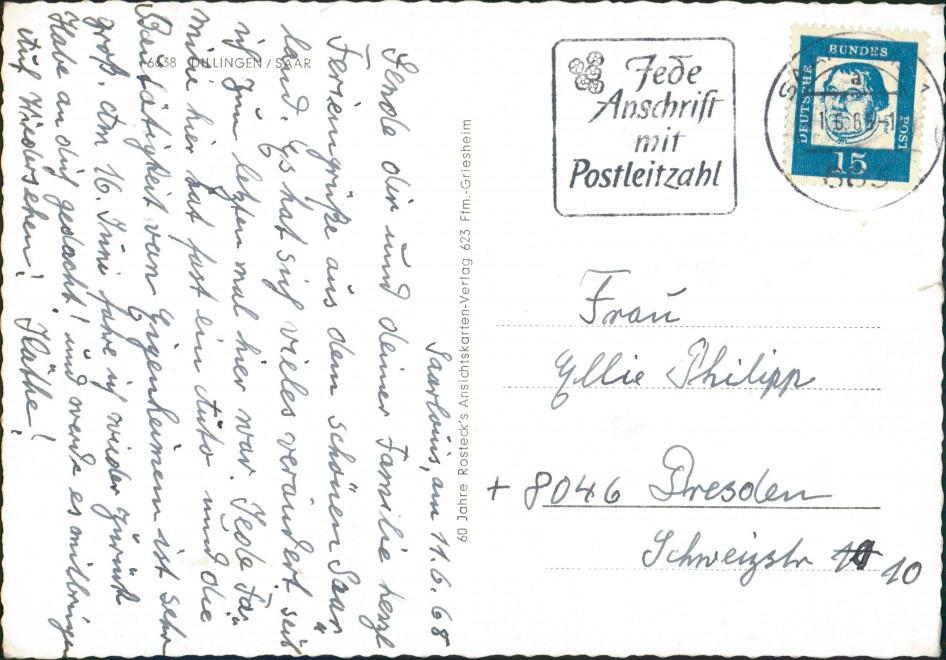 6638 DILLINGEN / SAAR
Saarlouis, am 11.6.68
Sende dir und deiner Familie herzl
Feriengrüße aus dem schönen Saar
land. Es hat sich vieles verändert seit
ich zum letzten mal hier war. Jede Fa
milie hier hat fast ein Auto und die
Bautätigkeit von Eigenheimen ist sehr
groß. Am 16. Juni fahre ich wieder zurück
Habe an dich gedacht! und werde es mitbringen
Auf Wiedersehen! Käthe!
60 Jahre Rosteck's Ansichtskarten-Verlag 623 Ffm.-Griesheim
Jede
Anschrift
mit
Postleitzahl
DEUTSCHE BUNDESPOST
15
a
Frau
Ellie Philipp
+ 8046 Dresden
Schweizstr 10